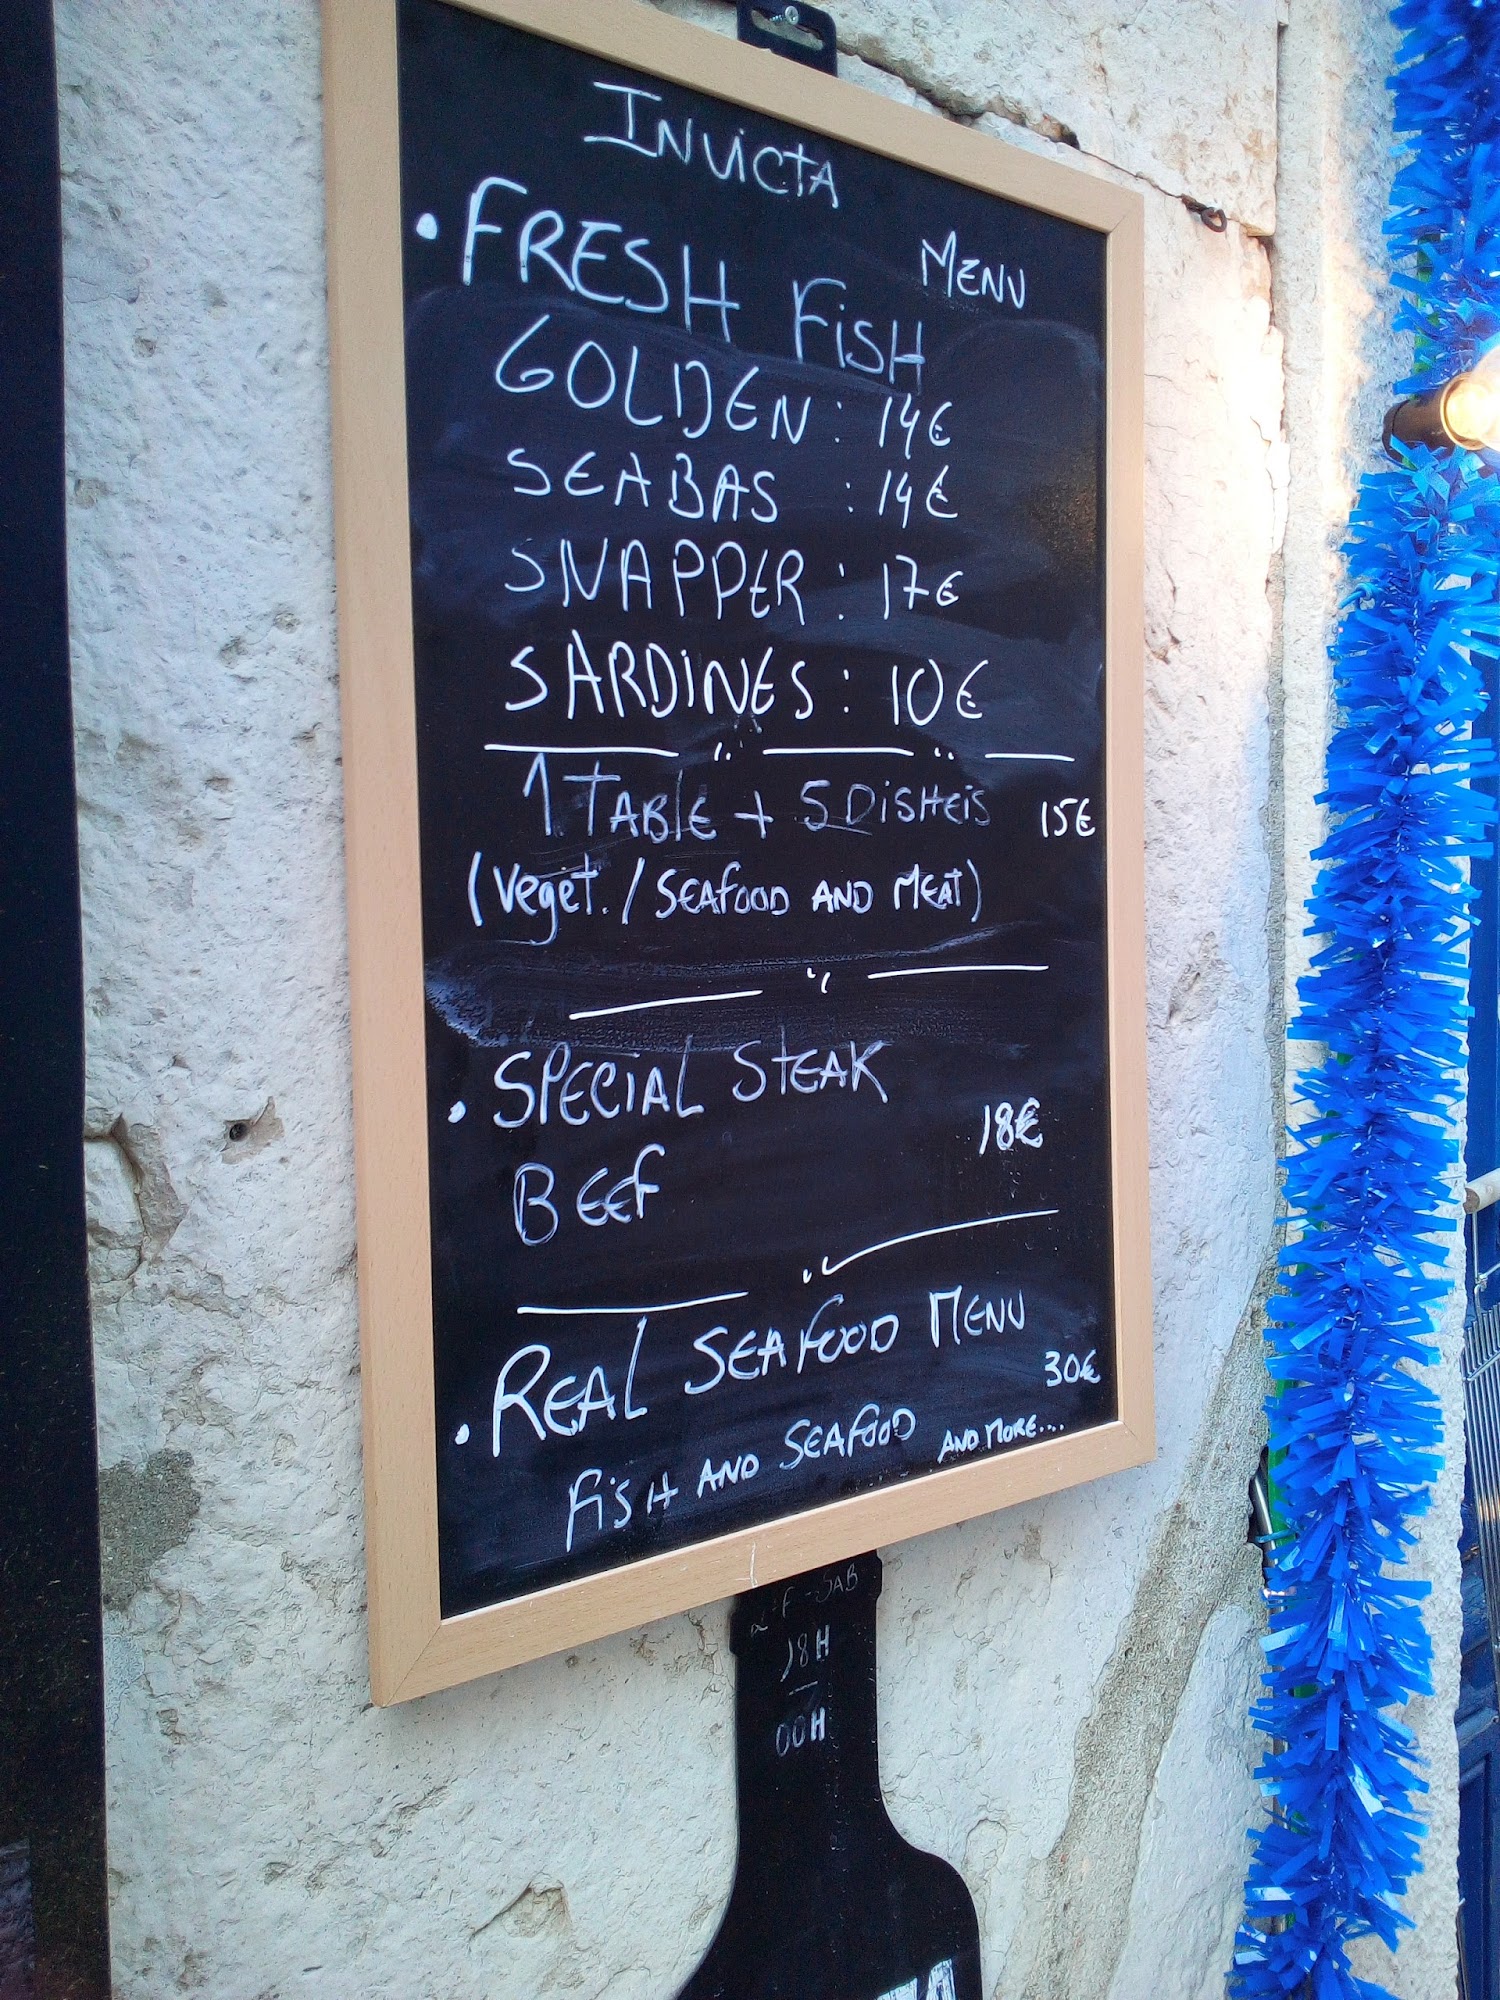 INVICTA
MENU
• FRESH FISH
GOLDEN : 14€
SEABAS : 14€
SNAPPER : 17€
SARDINES : 10€
1 TABLE + 5 DISHEIS 15€
(Veget. / SEAFOOD AND MEAT)
• SPECIAL STEAK
BEEF 18€
• REAL SEAFOOD MENU
30€
FISH AND SEAFOOD AND MORE....
2ªF - SAB
18H
—
00H